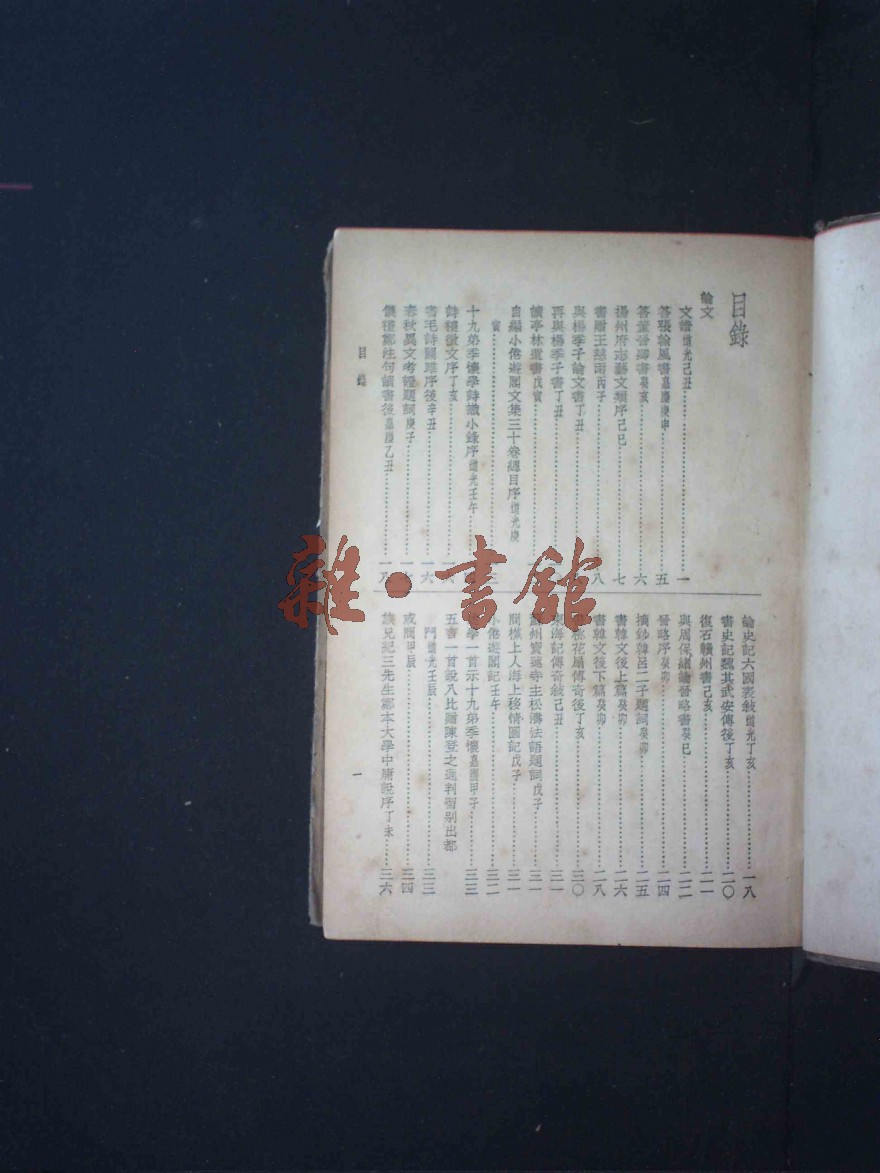 目錄
論文
文譜道光己丑……一
答張翰風書嘉慶庚申……五
答董晉卿書癸亥……六
揚州府志藝文類序己巳……七
書贈王慈雨丙子……八
與楊季子論文書丁丑……
再與楊季子書丁丑……
讀亭林遺書戊寅……
自編小倦遊閣文集三十卷總目序道光庚
寅……三
十九弟季懷學詩識小錄序道光壬午……
詩禮徵文序丁亥……
書毛詩關雎序後辛丑……一六
春秋異文考證題詞庚子……一七
儀禮鄭注句讀書後嘉慶乙丑……一八
論史記六國表敘道光丁亥……一八
書史記魏其武安傳後丁亥……二〇
復石贛州書己亥……二一
與周保緒論晉略書癸巳……二二
晉略序癸卯……二四
摘鈔韓呂二子題詞癸卯……二五
書韓文後上篇癸卯……二六
書韓文後下篇癸卯……二八
書桃花扇傳奇後丁亥……三〇
東海記傳奇敘己丑……三一
蘇州寶蓮寺主松濤法語題詞戊子……三一
問樵上人海上移情圖記戊子……三一
小倦遊閣記壬午……三二
學一首示十九弟季懷嘉慶甲子……三三
五書一首說八比贈陳登之通判留別出都
門道光壬辰……三三
或問甲辰……三四
族兄紀三先生鄭本大學中庸說序丁未……三六
目錄
一
雜·書館